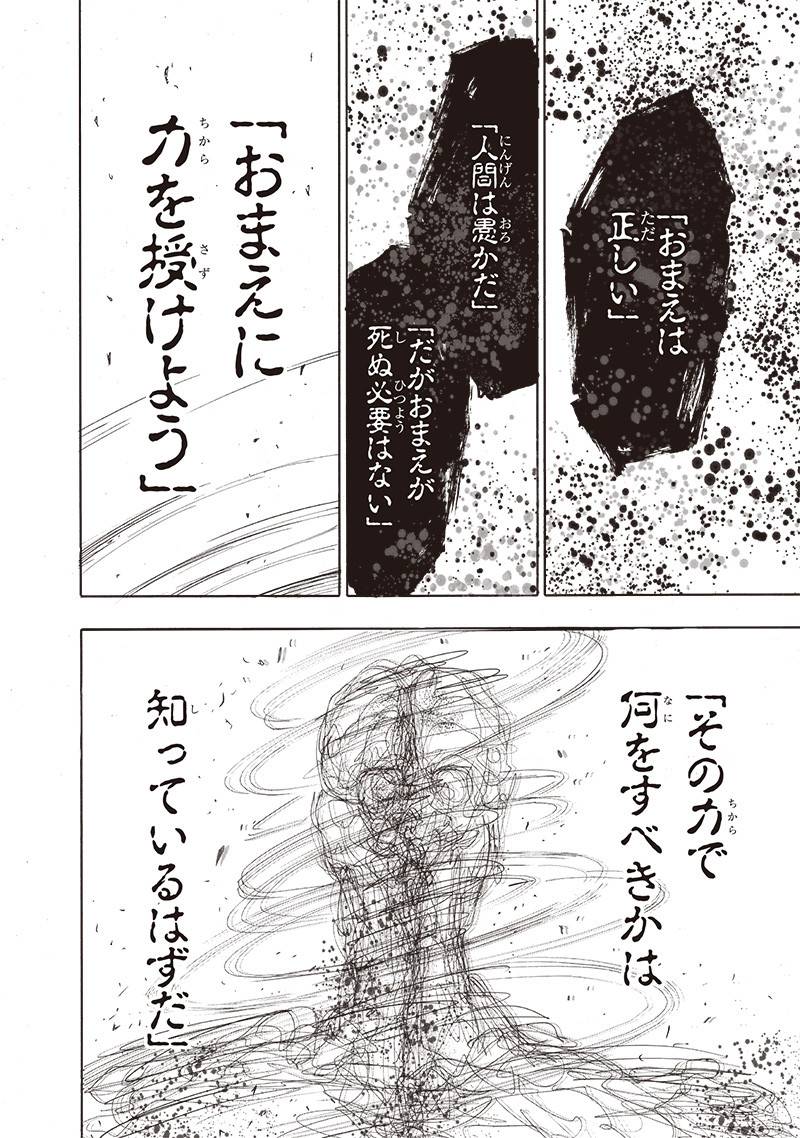 「おまえは
正しい」
「人間は愚かだ」
「だがおまえが
死ぬ必要はない」
「おまえに
力を授けよう」
「その力で
何をすべきかは
知っているはずだ」